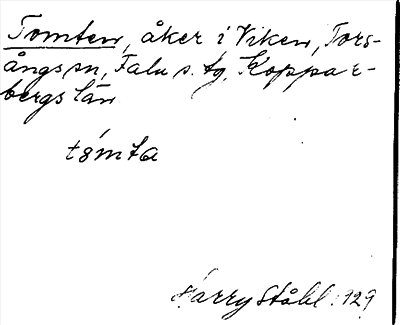 Tomten, åker i Viken, Tors-
ångs sn, Falu s. tg, Koppar-
bergs län
tómta
Harry Ståhl 1929